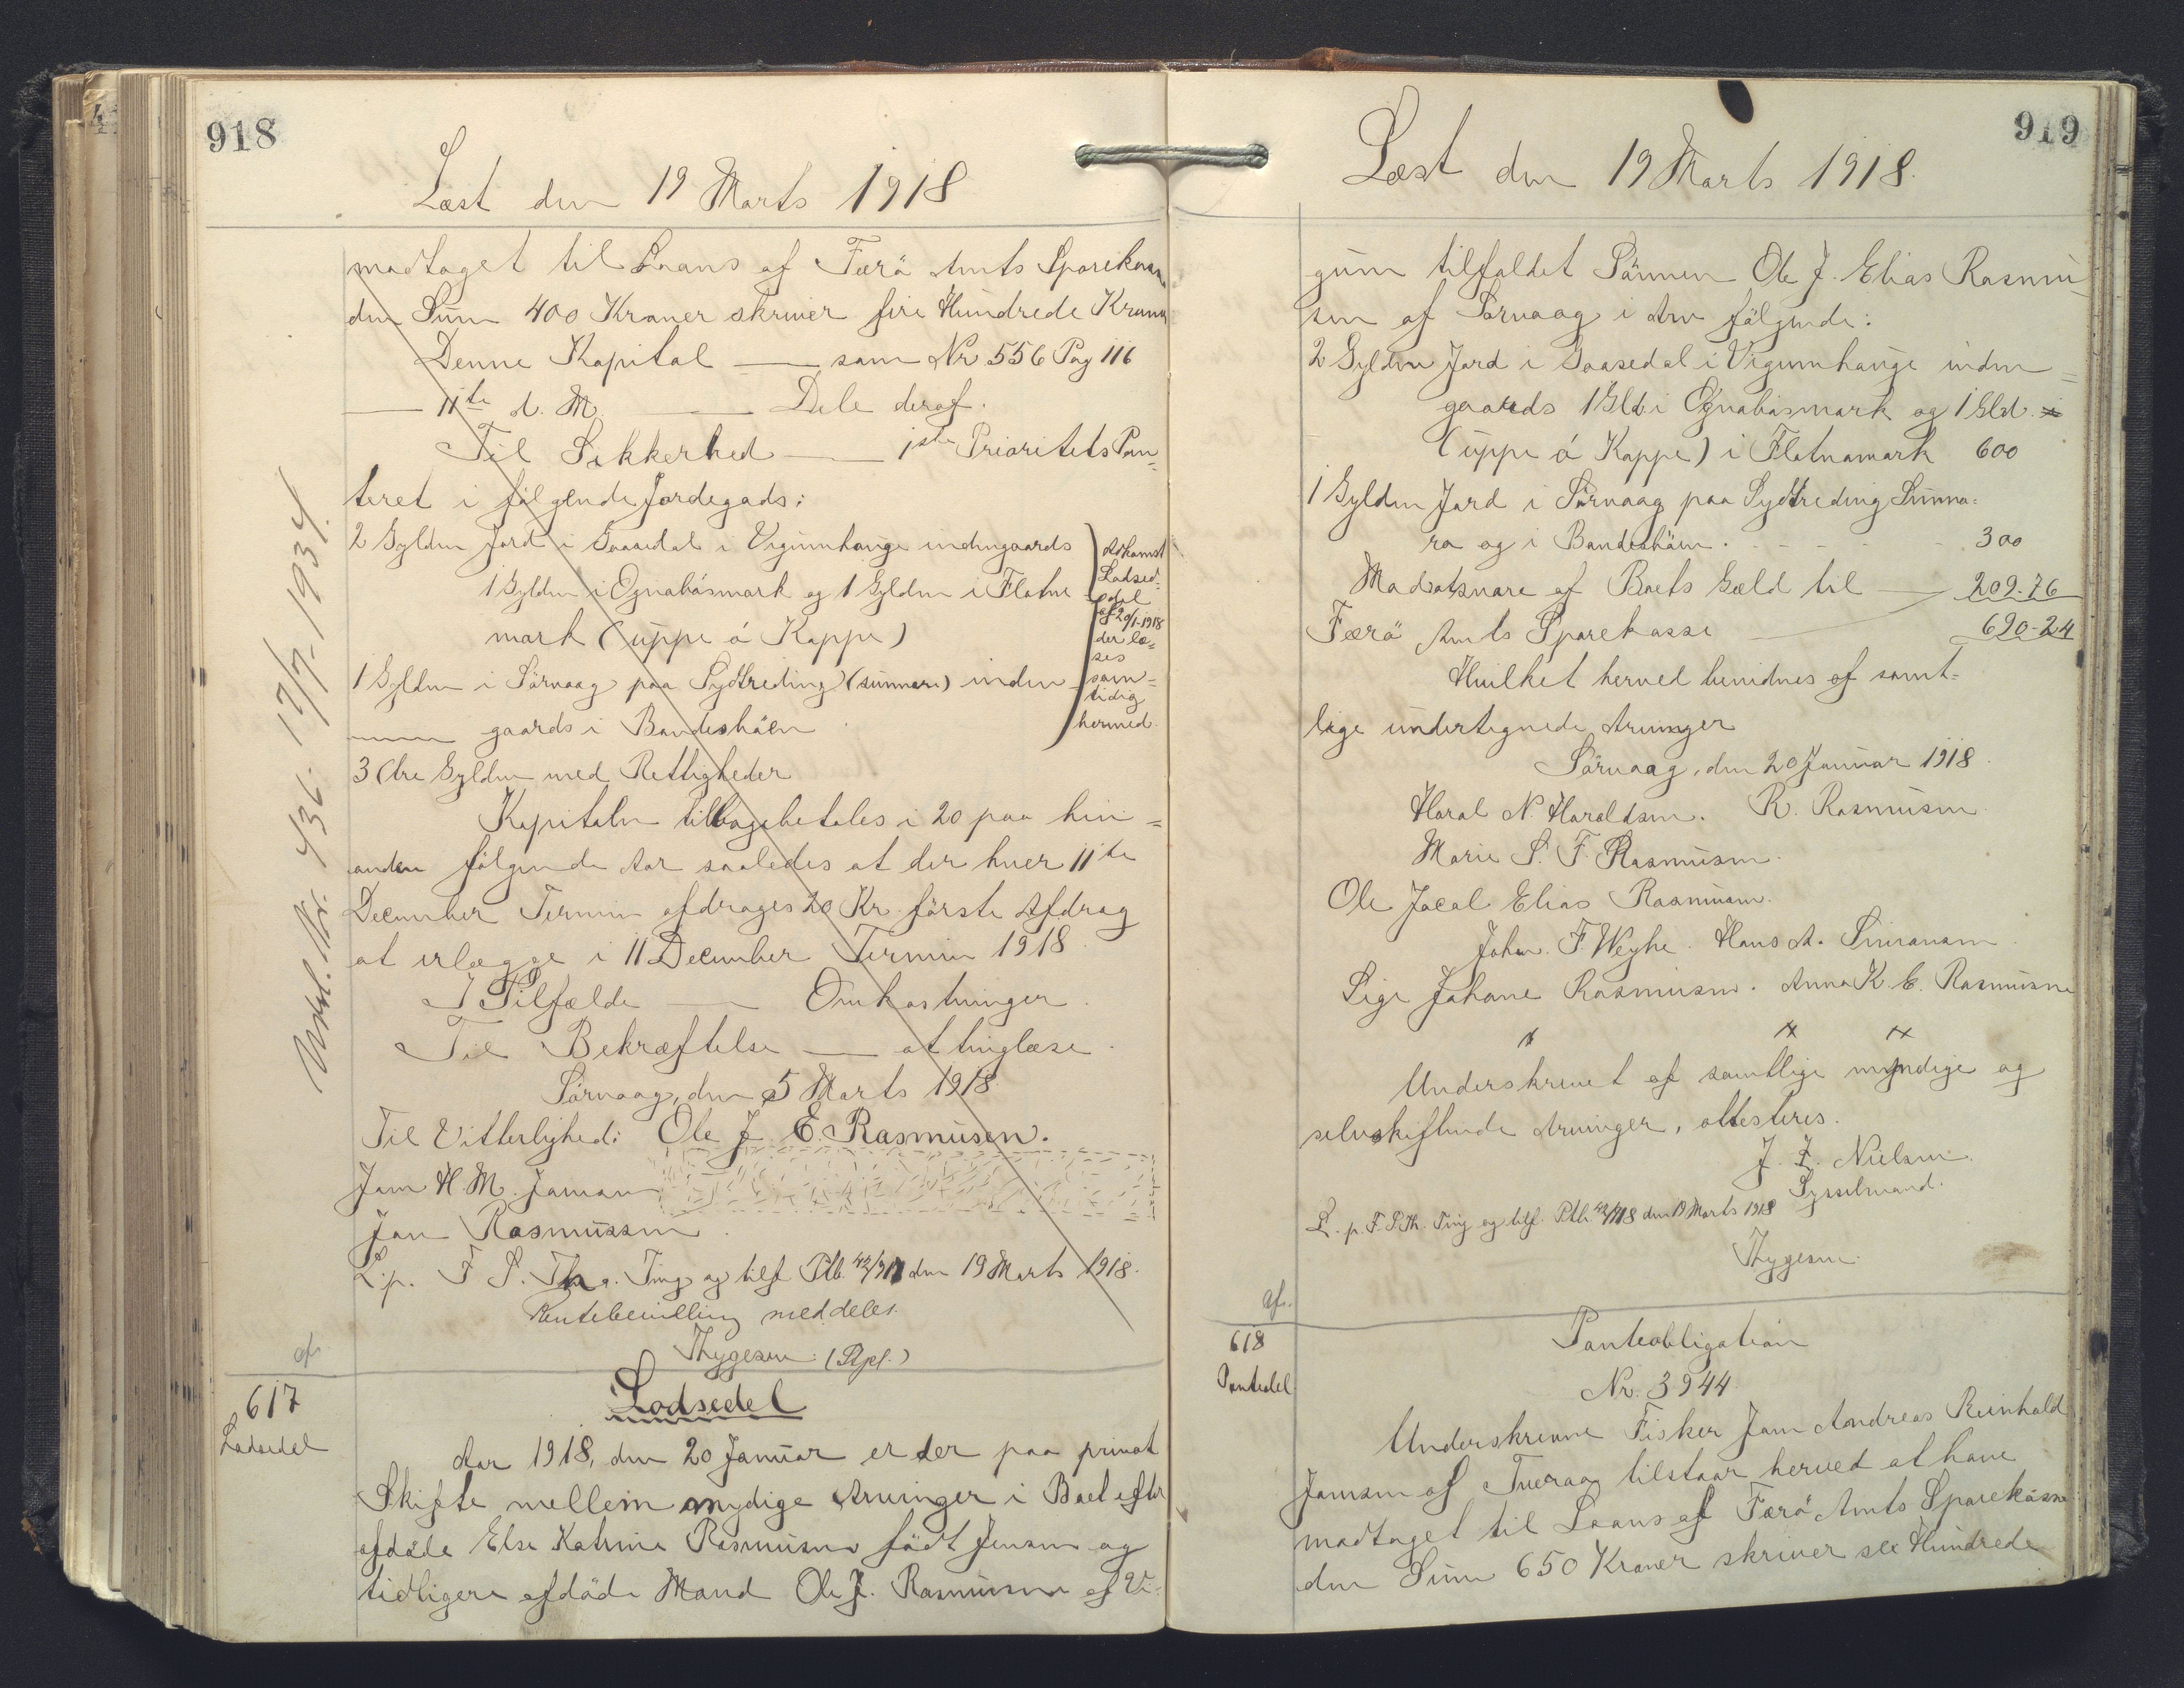 918
Læst den 19 Marts 1918
modtaget til Laans af Færö Amts Sparekasse
den Sum 400 Kroner skriver fire Hundrede Kroner
Denne Kapital — som Nr 556 Pag 116
— 11te d. M. — Dele deraf.
Til Sikkerhed — 1ste Prioritets Pan-
teret i fölgende Jordegods:
2 Gylden Jord i Gaasedal i Vigunnhauge indengaards
1 Gylden i Ognabásmark og 1 Gylden i Flatne
mark (uppi á Kappi)
1 Gylden i Sörvaag paa Sydtreding (sunnari) inden-
gaards i Bandeshåen
Adkomst
Lodsed-
del
af 20/1-1918
der læ-
ses
sam-
tidig
hermed.
3 (tre Gylden med Rettigheder
Kapitalen tilbagebetales i 20 paa hin-
anden fölgende Aar saaledes at der hver 11te
December Termin afdrages 20 Kr. förste Afdrag
at erlægge i 11 December Termin 1918.
I Tilfælde — Omkostninger.
Til Bekræftelse — at tinglæse.
Sörvaag, den 5 Marts 1918
Til Vitterlighed: Ole J. E. Rasmusen.
Joen H. M. Joensen
Joen Rasmussen
L. p. F. S. Th. a. Ting og tilf Ptb. 42/918 den 19 Marts 1918.
Rentebevilling meddeles.
Thygesen. (Stpl.)
Udsl. Nr. 436. 17/7-1934.
afs.
617
Lodsedel
Lodsedel
Aar 1918, den 20 Januar er der paa privat
Skifte mellem mydige Arvinger i Boet efter
afdöde Else Katrine Rasmusen födt Jensen og
tidligere afdöde Mand Ole J. Rasmusen af Vi-
919
Læst den 19 Marts 1918.
gum tilfaldet Sönnen Ole J. Elias Rasmu-
sen af Sörvaag i Arv fölgende:
2 Gylden Jord i Gaasedal i Vigunnhauge inden-
gaards 1 Gld. i Ognabásmark og 1 Gld. i
(uppi á Kappi) i Flatnamark 600
1 Gylden Jord i Sörvaag paa Sydtreding Sunna-
ra og i Bandeshåen. 300
Modsatsvare af Boets Gæld til — 209-76
Færö Amts Sparekasse — 690-24
Hvilket herved bevidnes af samt-
lige undertegnede Arvinger
Sörvaag, den 20 Januar 1918.
Haral N. Haraldsen. R. Rasmusen
Marie S. F. Rasmusen.
Ole Jacob Elias Rasmusen.
Johan F. Weyhe. Hans A. Simonsen
Sige Johane Rasmusen. Anna K. E. Rasmusen
Underskrevet af samtlige myndige og
selvskiftende Arvinger, attesteres.
J. F. Nielsen.
Sysselmand.
L. p. F. S. Th. Ting og tilf. Ptb. 42/918 den 19 Marts 1918
Thygesen.
afs.
618
Pantedel
Panteobligation
Nr. 3944.
Underskrevne Fisker Joen Andreas Reinhold
Joensen af Tveraa tilstaar herved at have
modtaget til Laans af Færö Amts Sparekasse
den Sum 650 Kroner skriver sex Hundrede